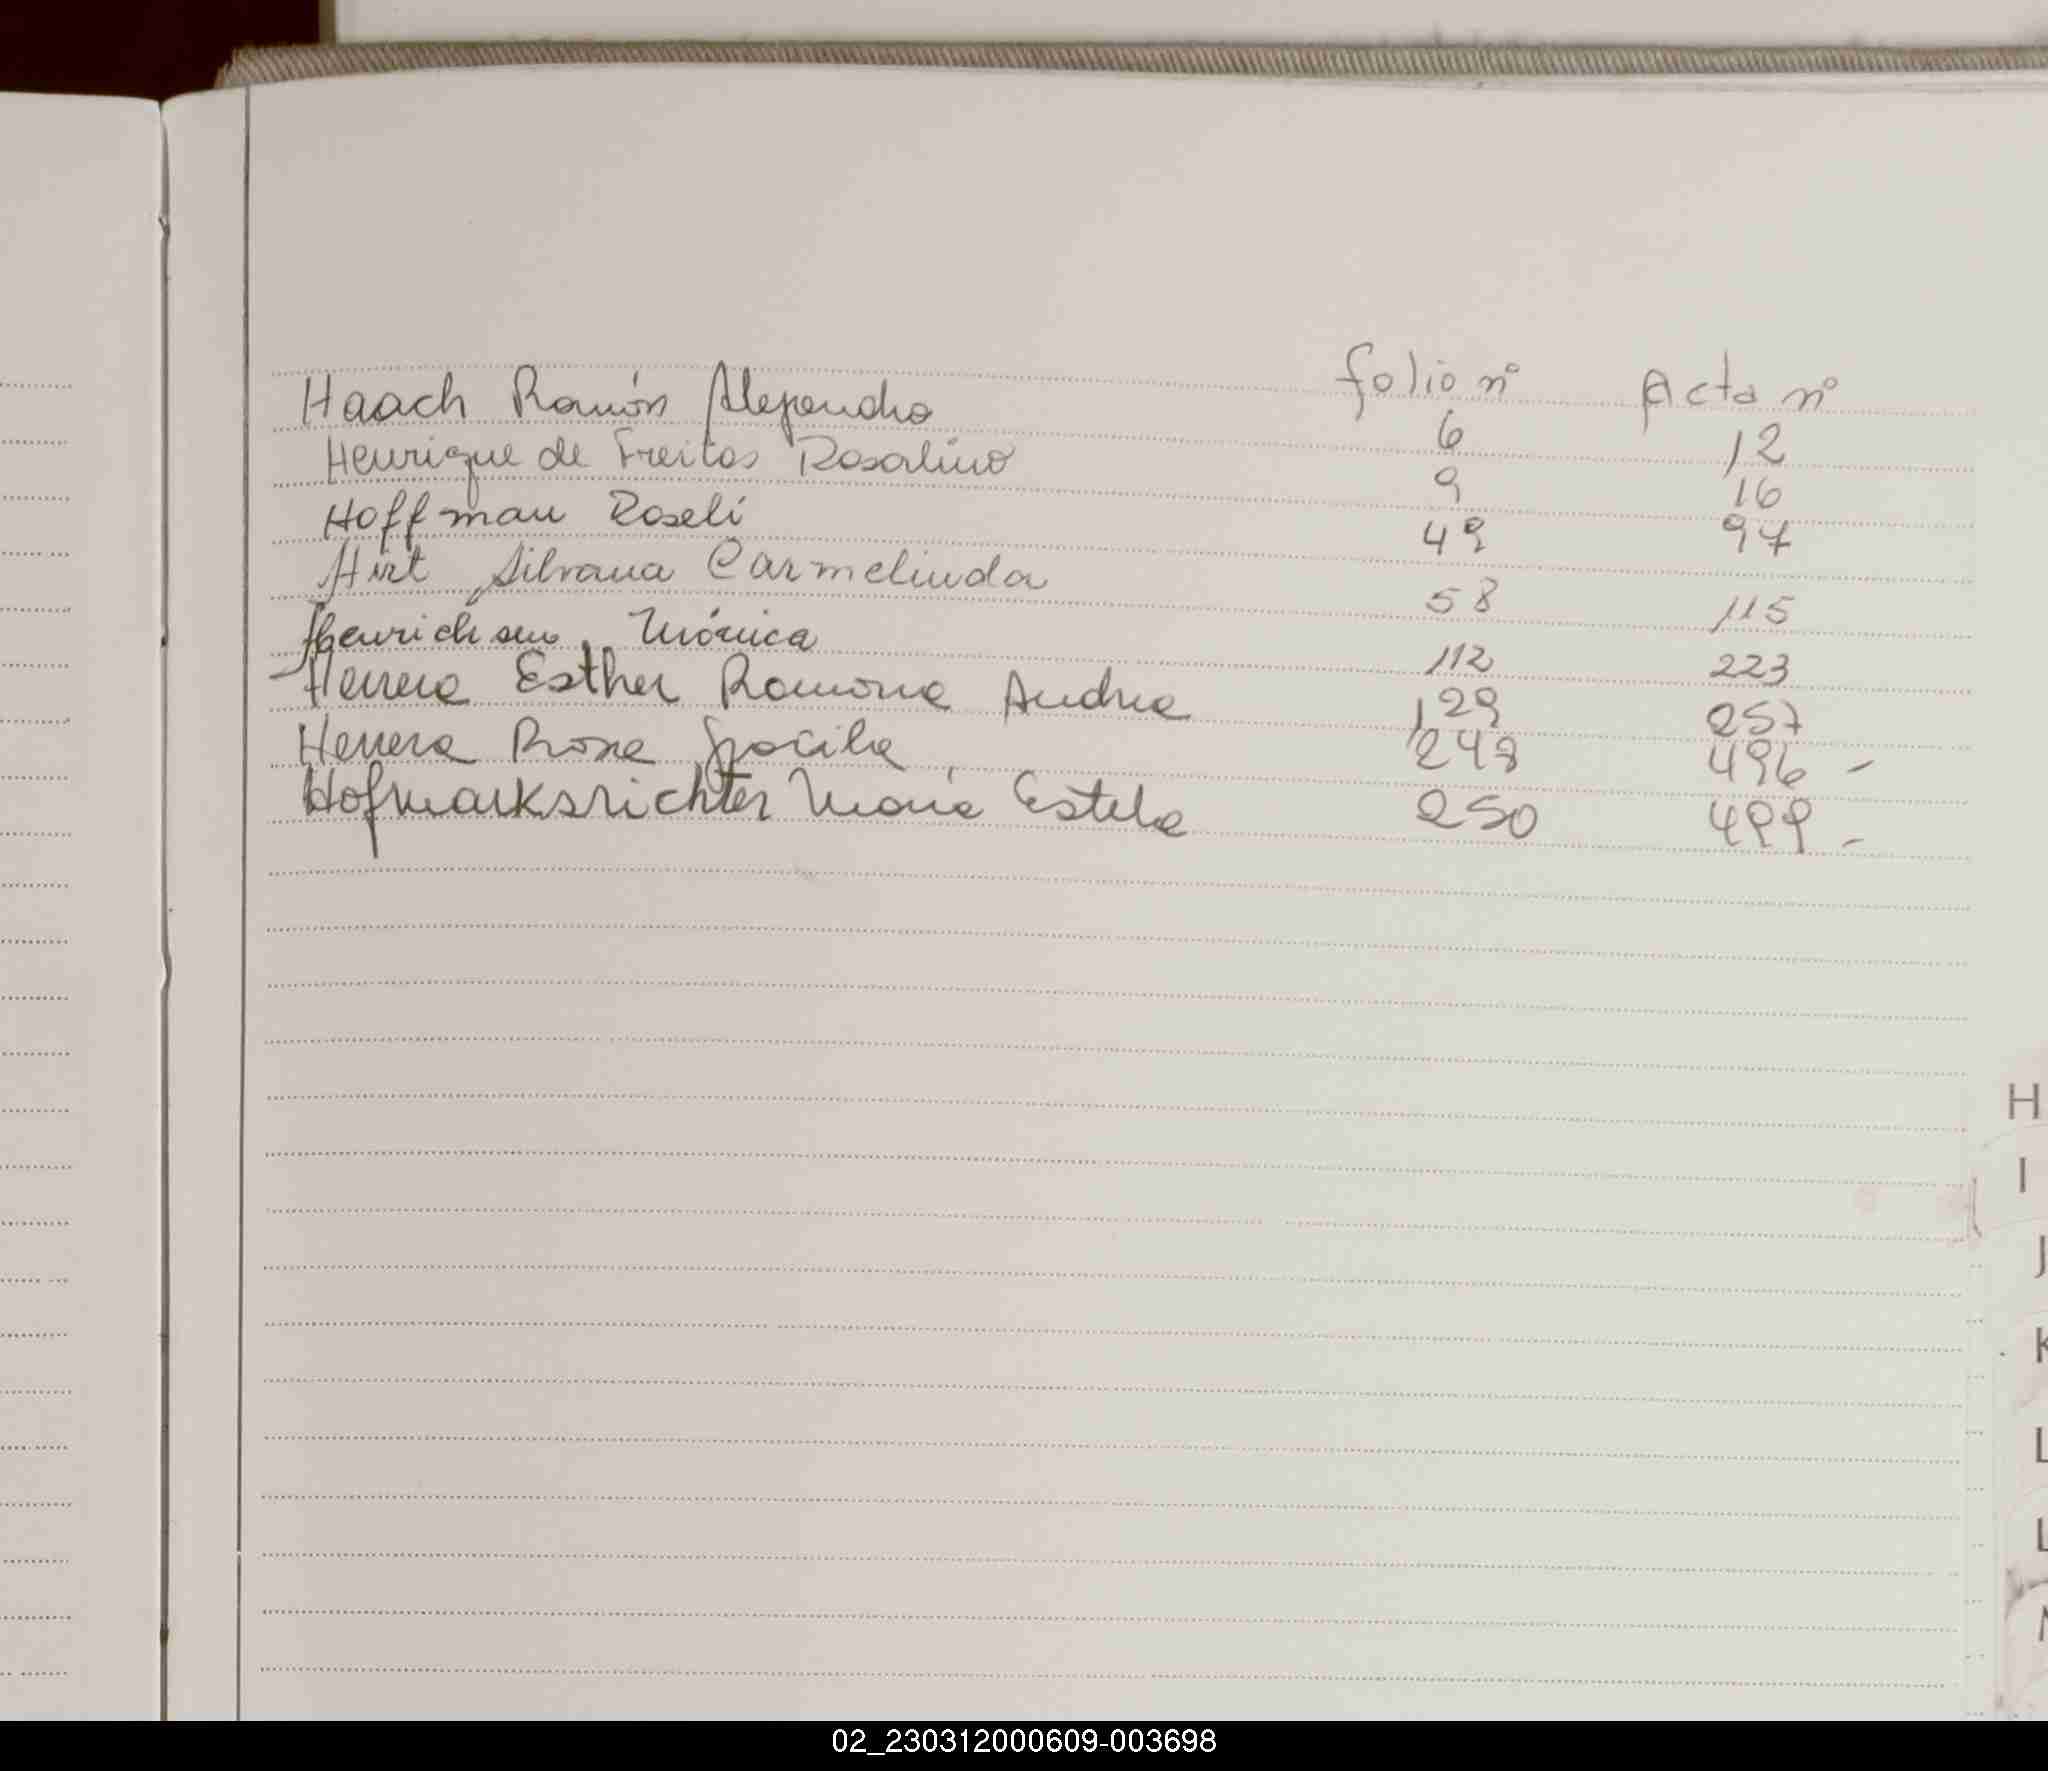 folio nº Acta nº
Haach Ramón Alejandro 6 12
Henrique de Freitas Rosalino 9 16
Hoffman Roseli 49 97
Hirt Silvana Carmelinda 58 115
Henrichsen Mónica 112 223
Herrera Esther Ramona Andrea 129 257
Herrera Rosa Graciela 248 496 -
Hofmarksrichter María Estela 250 499 -
H
I
J
K
L
L
02_230312000609-003698